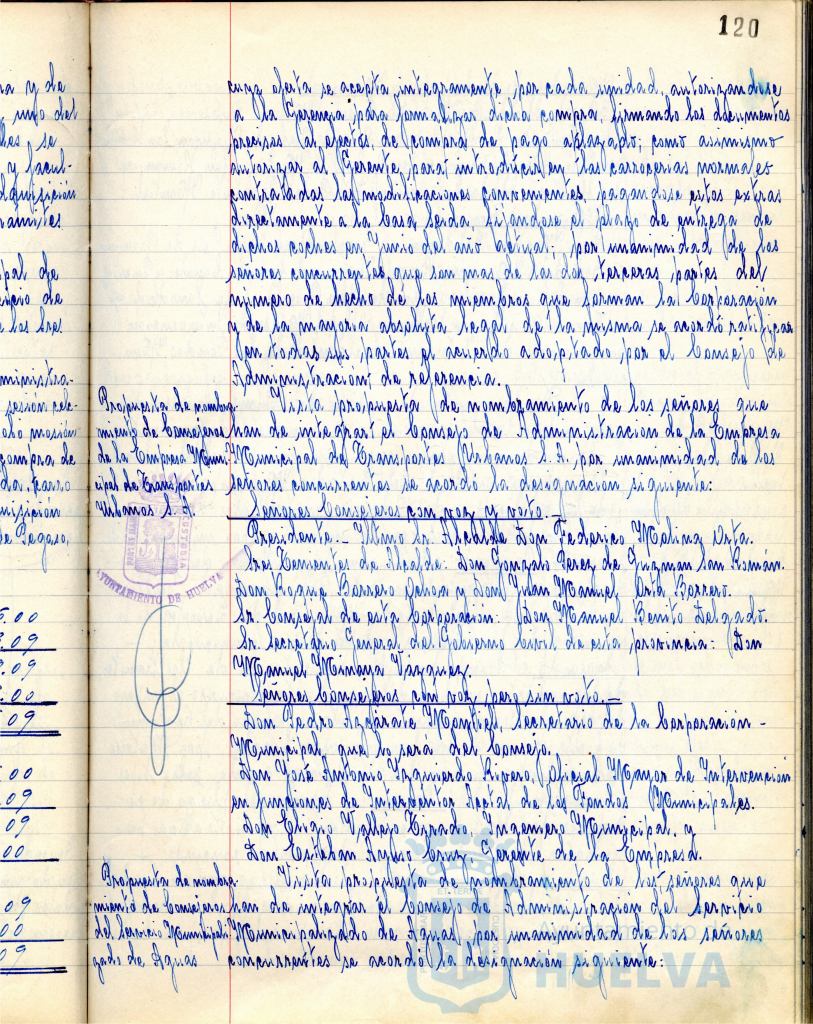 120
cuya oferta se acepta integramente por cada unidad, autorizandose
a la Gerencia para formalizar dicha compra, firmando los documentos
precisos al efecto, de compra de pago aplazado; como asimismo
autorizar al Gerente para introducir en las carrocerias normales
contratadas las modificaciones convenientes, pagandose estos extras
directamente a la Casa Seida, fijandose el plazo de entrega de
dichos coches en Junio del año actual; por unanimidad de los
señores concurrentes que son mas de las dos terceras partes del
número de hecho de los miembros que forman la Corporación
y de la mayoria absoluta legal de la misma se acordó ratificar
en todas sus partes el acuerdo adoptado por el Consejo de
Administración de referencia.
Propuesta de nombra-
miento de Consejeros
de la Empresa Muni-
cipal de Transportes
Urbanos S.A.
Vista propuesta de nombramiento de los señores que
han de integrar el Consejo de Administracion de la Empresa
Municipal de Transportes Urbanos S.A. por unanimidad de los
señores concurrentes se acordó la designación siguiente:
Señores Consejeros con voz y voto.-
Presidente.- Iltmo Sr. Alcalde Don Federico Molina Orta.
Sres Tenientes de Alcalde: Don Gonzalo Perez de Guzman San Román.
Don Roque Barrero Ochoa y Don Juan Manuel Orta Borrero.
Sr. Concejal de esta Corporación: Don Manuel Benito Delgado.
Sr. Secretario General del Gobierno Civil de esta provincia: Don
Manuel Minaya Vazquez.
Señores Consejeros con voz, pero sin voto.-
Don Pedro Azcárate Montiel, Secretario de la Corporación -
Municipal, que lo será del Consejo.
Don José Antonio Izquierdo Rivero, Oficial Mayor de Intervención
en funciones de Interventor Acctal de los Fondos Municipales.
Don Eligio Vallejo Ingeniero Municipal. y
Don Esteban Cruz, Gerente de la Empresa.
Propuesta de nombra-
miento de Consejeros
del Servicio Municipali-
zado de Aguas
Vista propuesta de nombramiento de los señores que
han de integrar el Consejo de Administracion del Servicio
Municipalizado de Aguas, por unanimidad de los señores
concurrentes se acordó la designación siguiente:
AYUNTAMIENTO DE HUELVA
Ayuntamiento
HUELVA